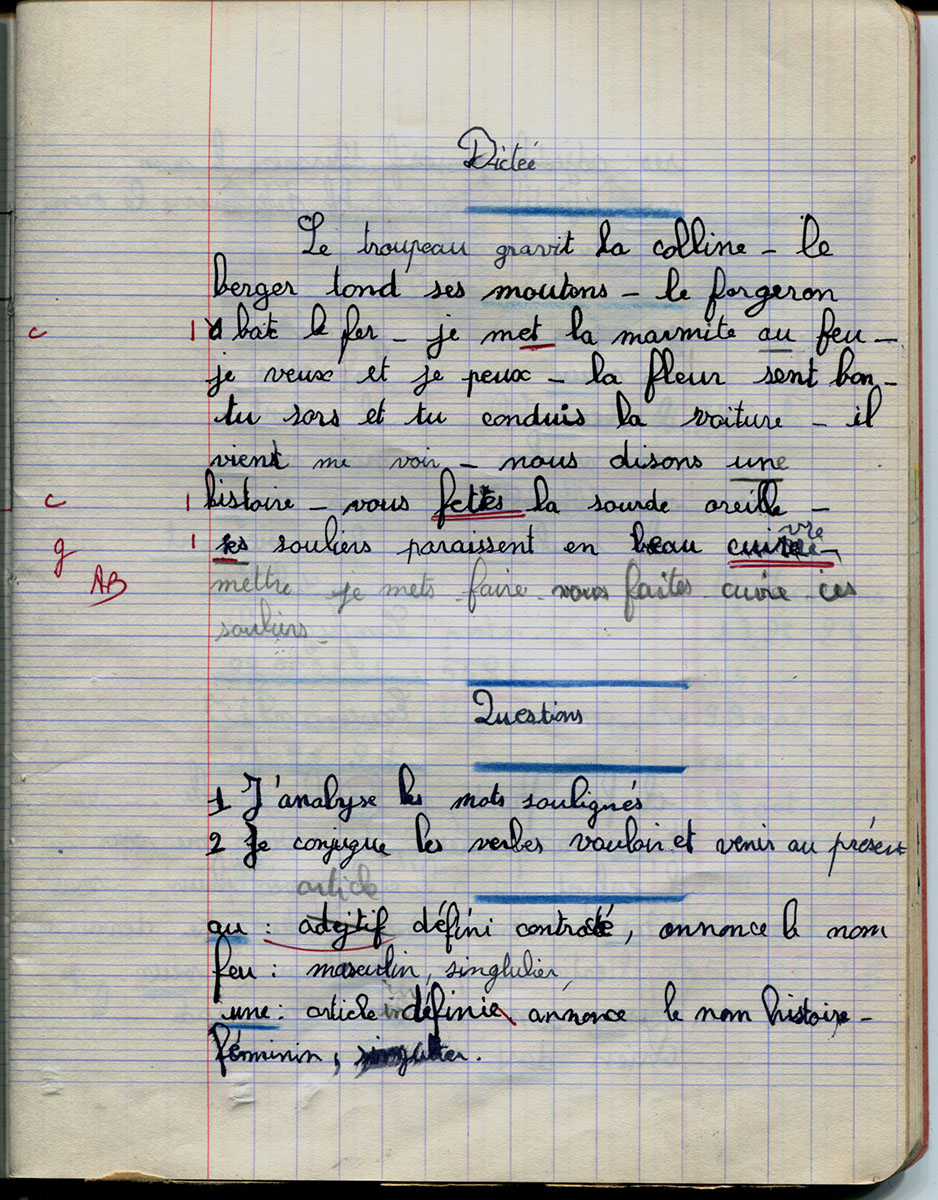 Dictée
Le troupeau gravit la colline - le
berger tond ses moutons - le forgeron
c 1 bat le fer - je met la marmite au feu -
je veux et je peux - la fleur sent bon -
tu sors et tu conduis la voiture - il
vient me voir - nous disons une
c 1 histoire - vous fettes la sourde oreille -
g 1 ses souliers paraissent en beau cuire
AB mettre je mets - faire - vous faites - cuire ces
souliers -
Questions
1 J'analyse les mots soulignés
2 Je conjugue les verbes vouloir et venir au présent
article
au : adejtif défini contracté, annonce le nom
feu : masculin, singlulier
une : article indéfinie annonce le nom histoire -
féminin, singulier.